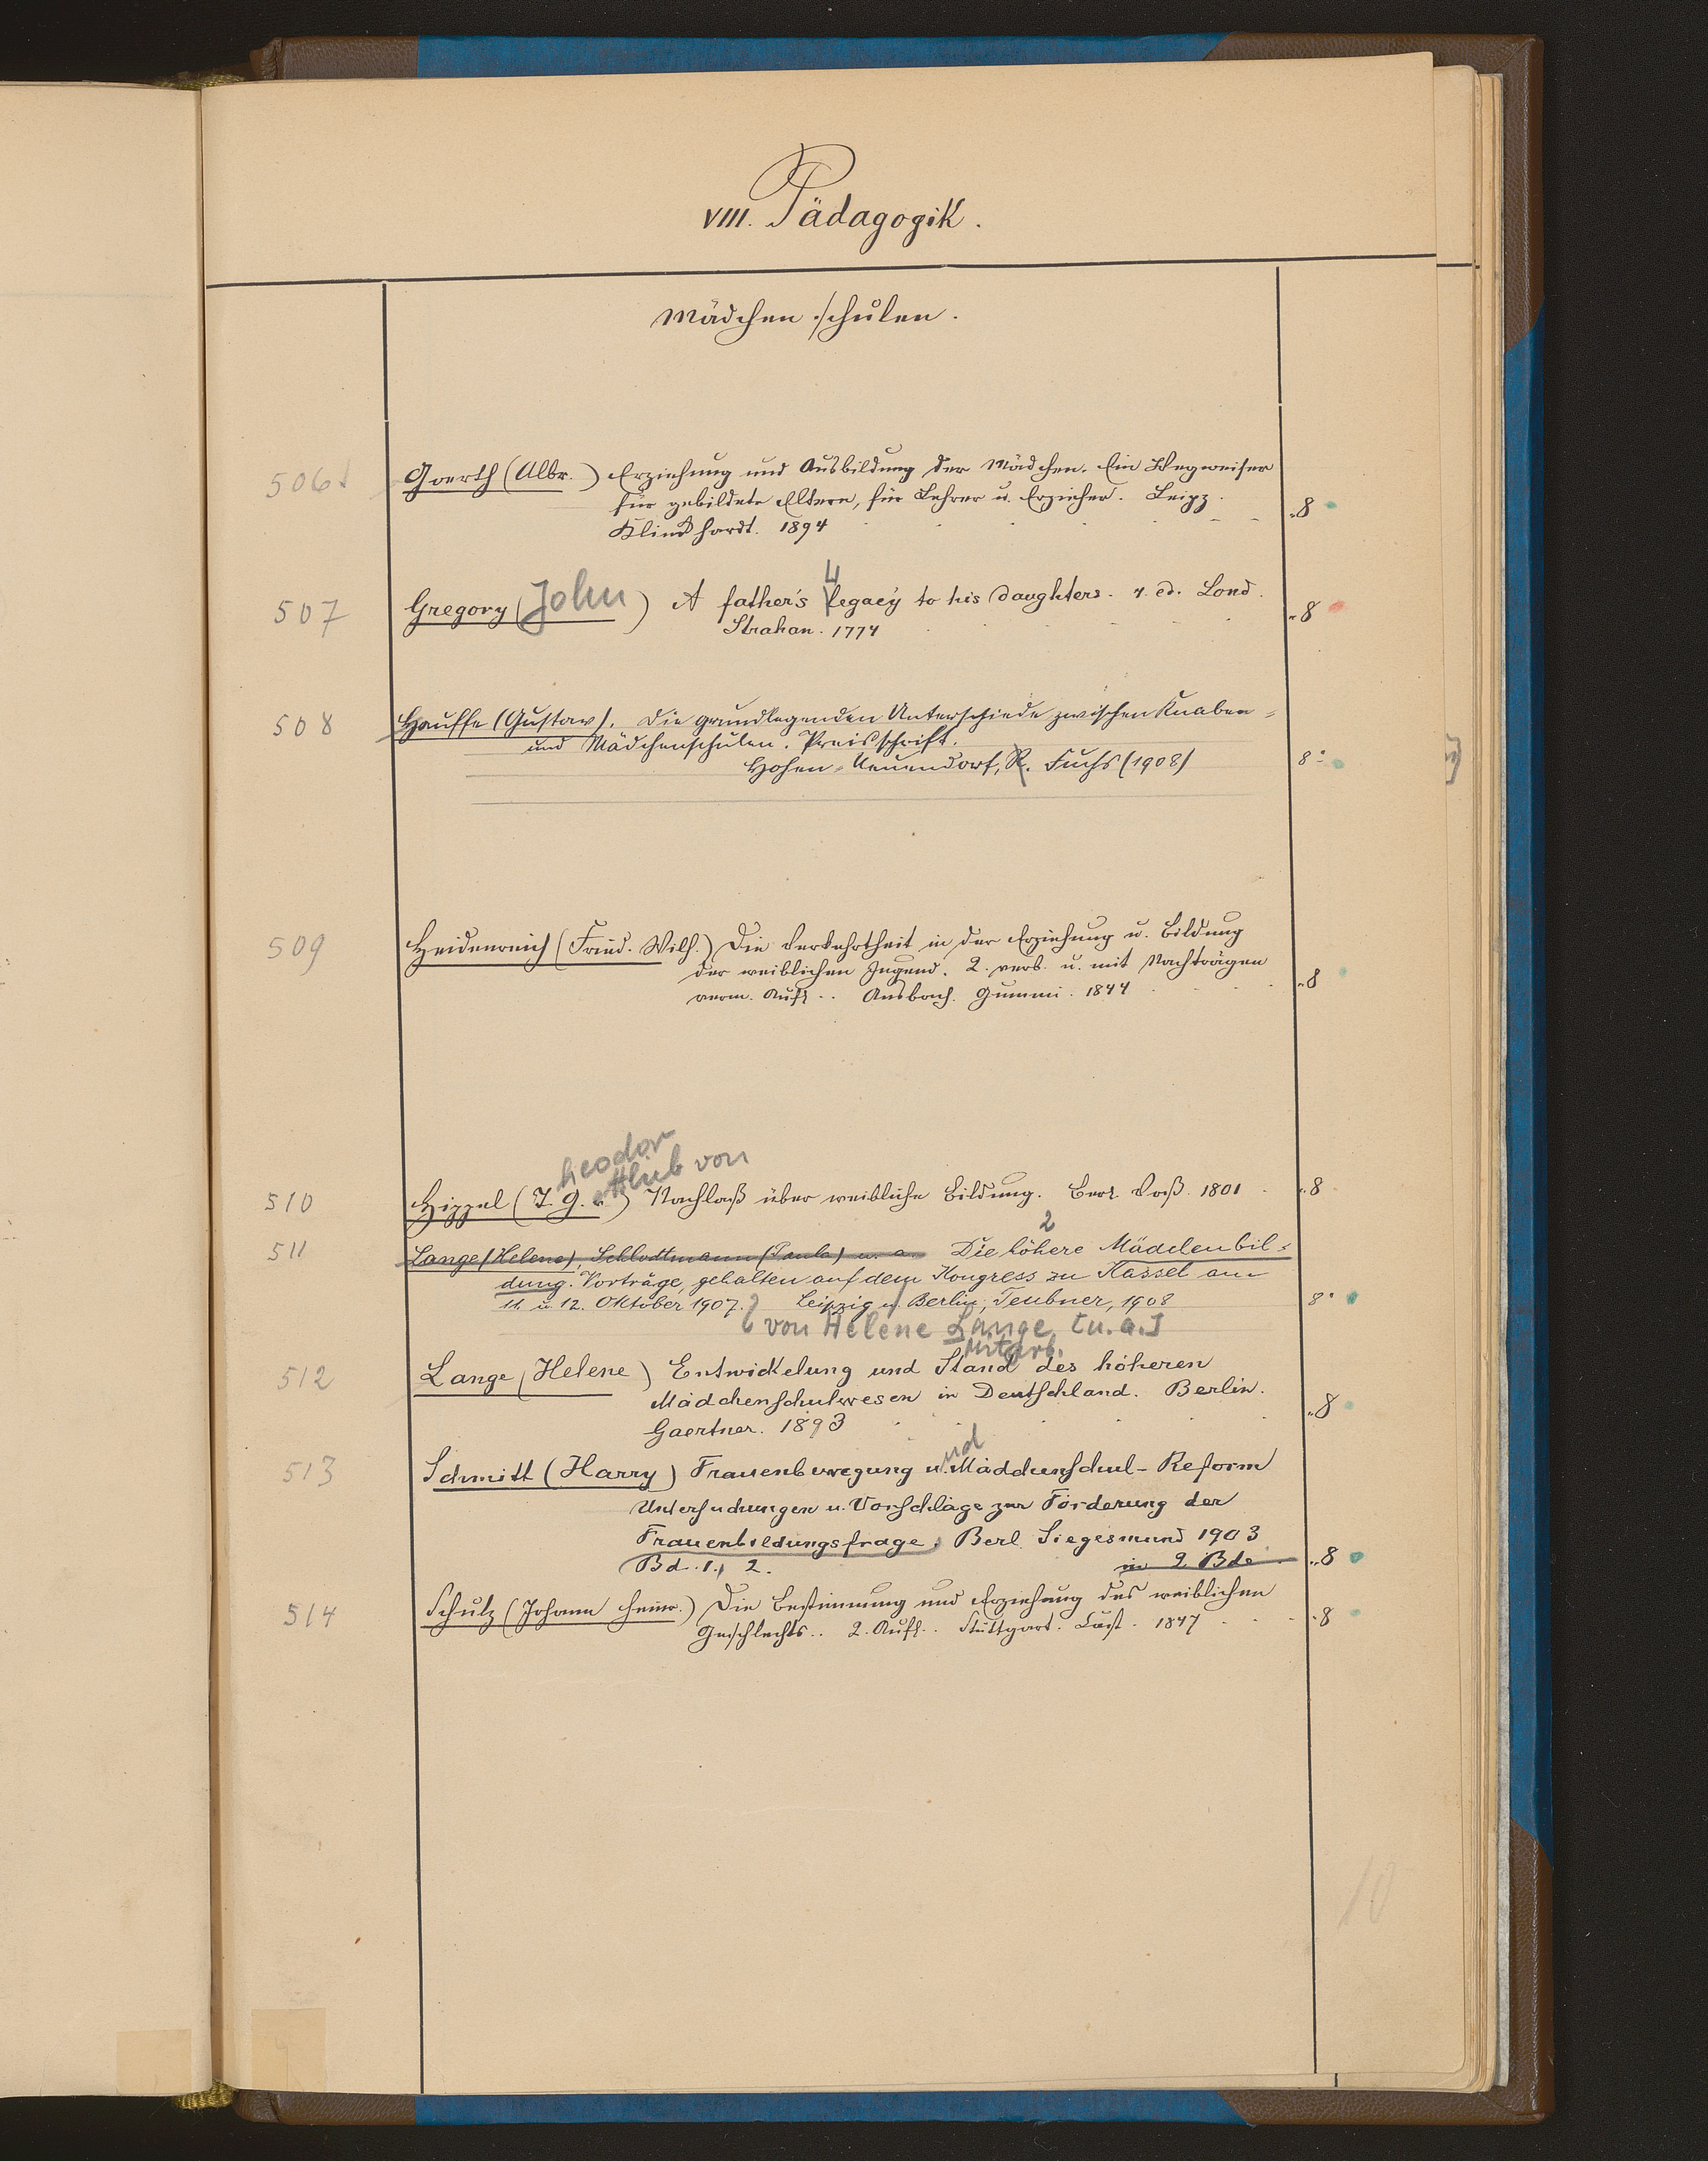 VIII. Pädagogik.
Mädchenschulen.
506 Goerth (Albr.) Erziehung und Ausbildung der Mädchen. Ein Wegweiser
für gebildete Eltern, für Lehrer u. Erzieher. Leipz.
Klinkhardt. 1894 8
507 Gregory (John) A father's Legacy to his daughters. 4. ed. Lond.
Strahan. 1774 8
508 Hauffe (Gustav). Die grundlegenden Unterschiede zwischen Knaben-
und Mädchenschulen. Preisschrift.
Hohen-Neuendorf, R. Fuchs (1908) 8°
509 Heidenreich (Fried. Wilh.) Die Verkehrtheit in der Erziehung u. Bildung
der weiblichen Jugend. 2. verb. u. mit Nachträgen
verm. Aufl. Ansbach. Gummi. 1844 8
heodor
ottlieb von
510 Hippel (T. G. v.) Nachlaß über weibliche Bildung. Berl. Voß. 1801 8
2
511 Lange (Helene), Schlodtmann (Paula) u. a. Die höhere Mädchenbil-
dung. Vorträge, gehalten auf dem Kongress zu Kassel am
11. u. 12. Oktober 1907. Leipzig u. Berlin, Teubner, 1908 8°
von Helene Lange [u. a.]
Mitarb.
512 Lange (Helene) Entwickelung und Stand des höheren
Mädchenschulwesen in Deutschland. Berlin.
Gaertner. 1893 8
nd
513 Schmitt (Harry) Frauenbewegung u. Mädchenschul-Reform
Untersuchungen u. Vorschläge zur Förderung der
Frauenbildungsfrage. Berl. Siegesmund 1903
Bd. 1., 2. in 2 Bde 8
514 Schulz (Johann Heinr.) Die Bestimmung und Erziehung des weiblichen
Geschlechts. 2. Aufl. Stuttgart. Cast. 1847 8
10